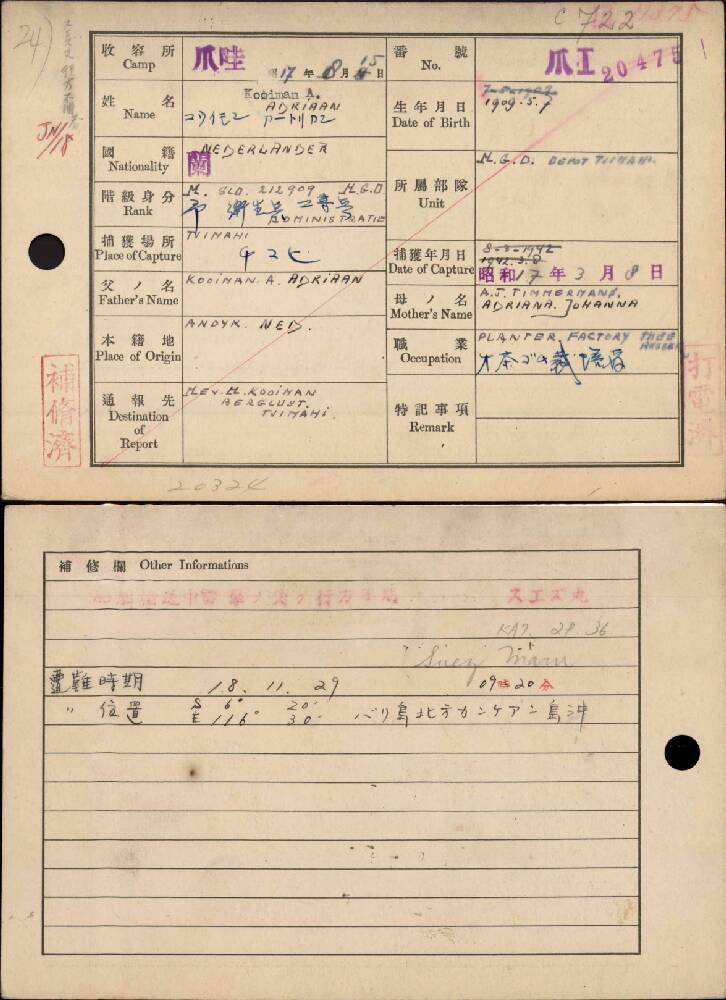 C 722
24)
JN/18
收容所 Camp 爪哇 昭17年8月15日
番號 No. 爪工 20475
姓名 Name Kooiman A. ADRIAAN
コウイモン アードリアン
生年月日 Date of Birth 1909.5.7
國籍 Nationality NEDERLANDER 蘭
階級身分 Rank M. SLD. 212909 M.G.D. ADMINISTRATIE
所屬部隊 Unit M.G.D. DEPOT TJIMAHI.
捕獲場所 Place of Capture TJIMAHI
チマヒ
捕獲年月日 Date of Capture 8-3-1942
1942.3.8
昭和17年3月8日
父ノ名 Father's Name KOOIMAN. A. ADRIAAN
母ノ名 Mother's Name A.J. TIMMERMANS. ADRIANA. JOHANNA
本籍地 Place of Origin ANDYK. NED.
職業 Occupation PLANTER, FACTORY THEE RUBBER
通報先 Destination of Report MEV. M. KOOIMAN
BERGLUST.
TJIMAHI.
特記事項 Remark
補脩濟
打電濟
20324
補修欄 Other Informations
スエズ丸
"Suez Maru"
遭難時期 18. 11. 29 09時20分
〃 位置 S 6° 20'
E 116° 30' バリ島北方カンケアン島沖